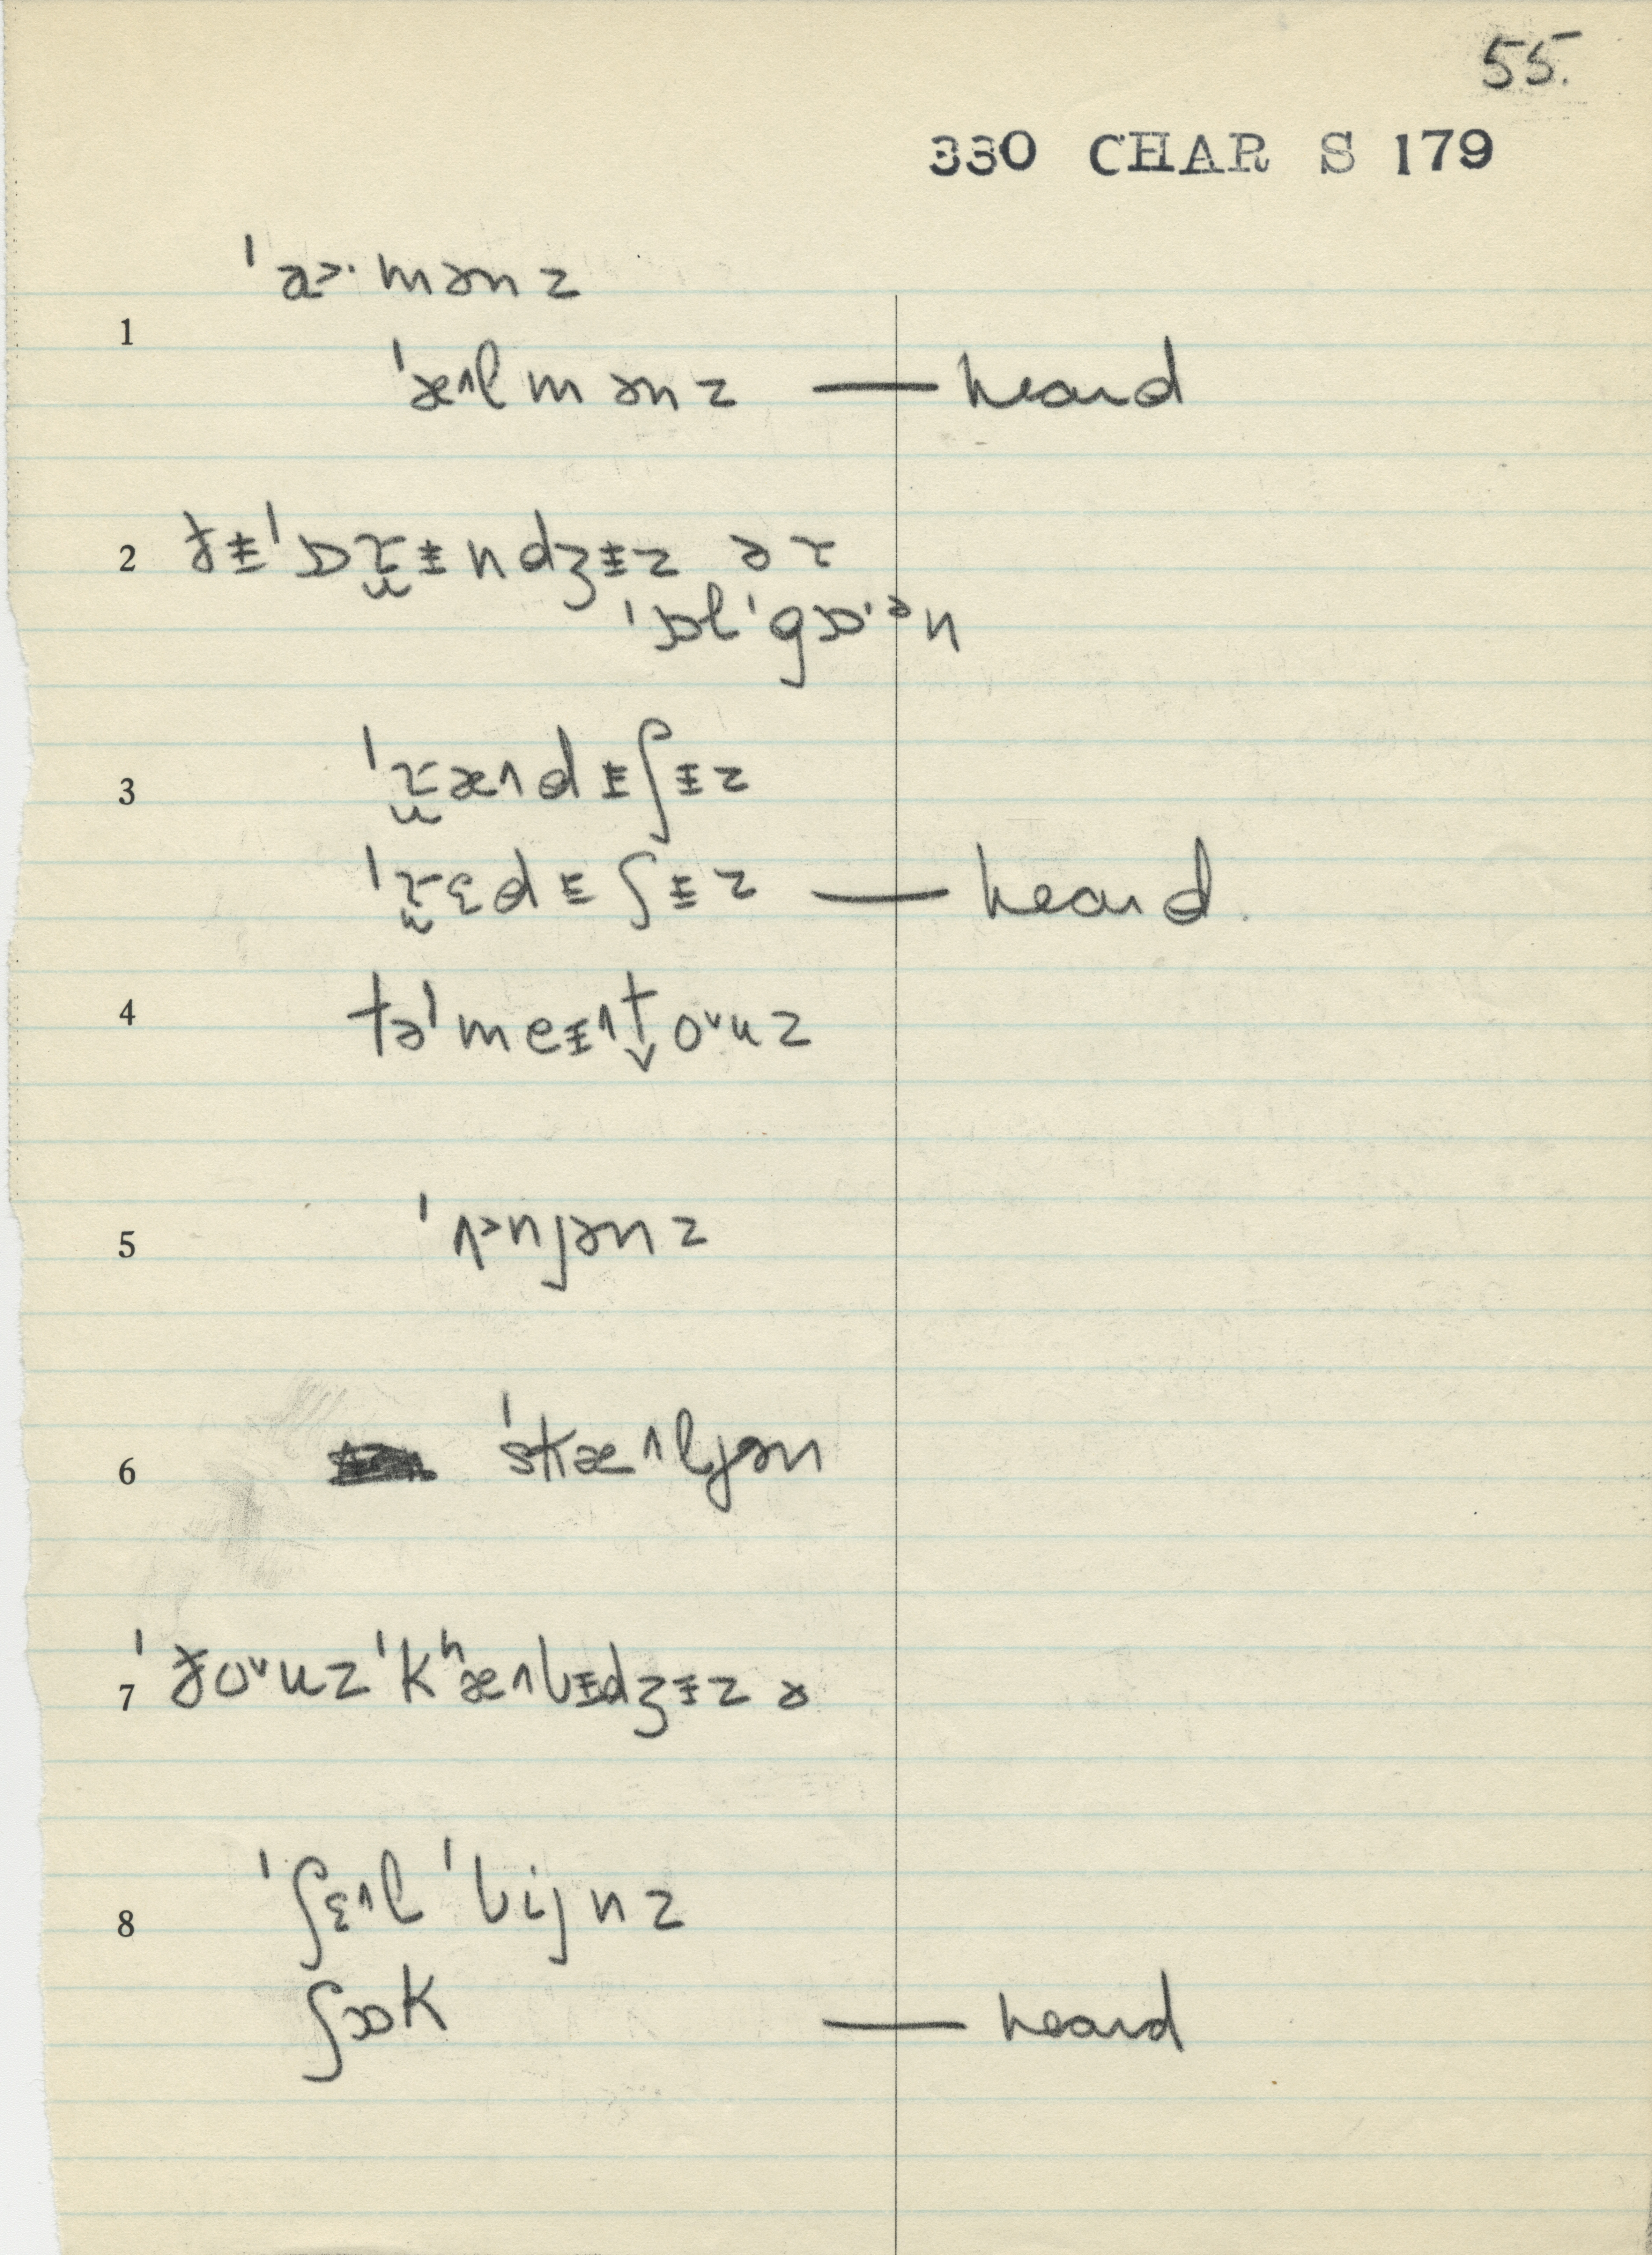 55.
330 CHAR S 179
ˈɑ˃·mənz
1
ˈæ˄lmənz — heard
2 ðɨˈɒɾ̮ɨndʒɨz ər
ˈɒlˈgɒ·ᵊn
3 ˈɾ̮æ˄dɨʃɨz
ˈɾ̮ɛdɨʃɨz — heard.
4 təˈmeɨ˄t̬oᵛuz
5 ˈʌ˃njənz
6 ˈskæ˄ljən
7 ˈðoᵛuzˈkʰæ˄bɨdʒɨz ə
8 ˈʃɛ˄lˈbijnz
ʃɒk — heard